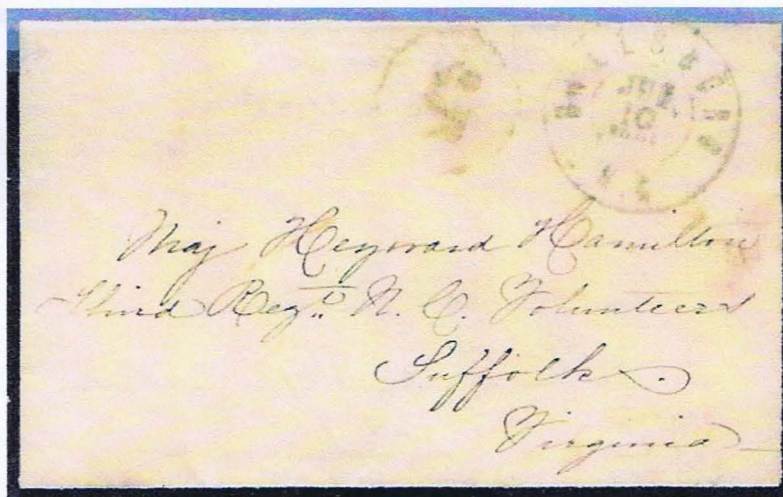 HILLSBORO
JUN
10
N.C.
Maj Heyward Hamilton
Third Regt. N. C. Volunteers
Suffolk
Virginia